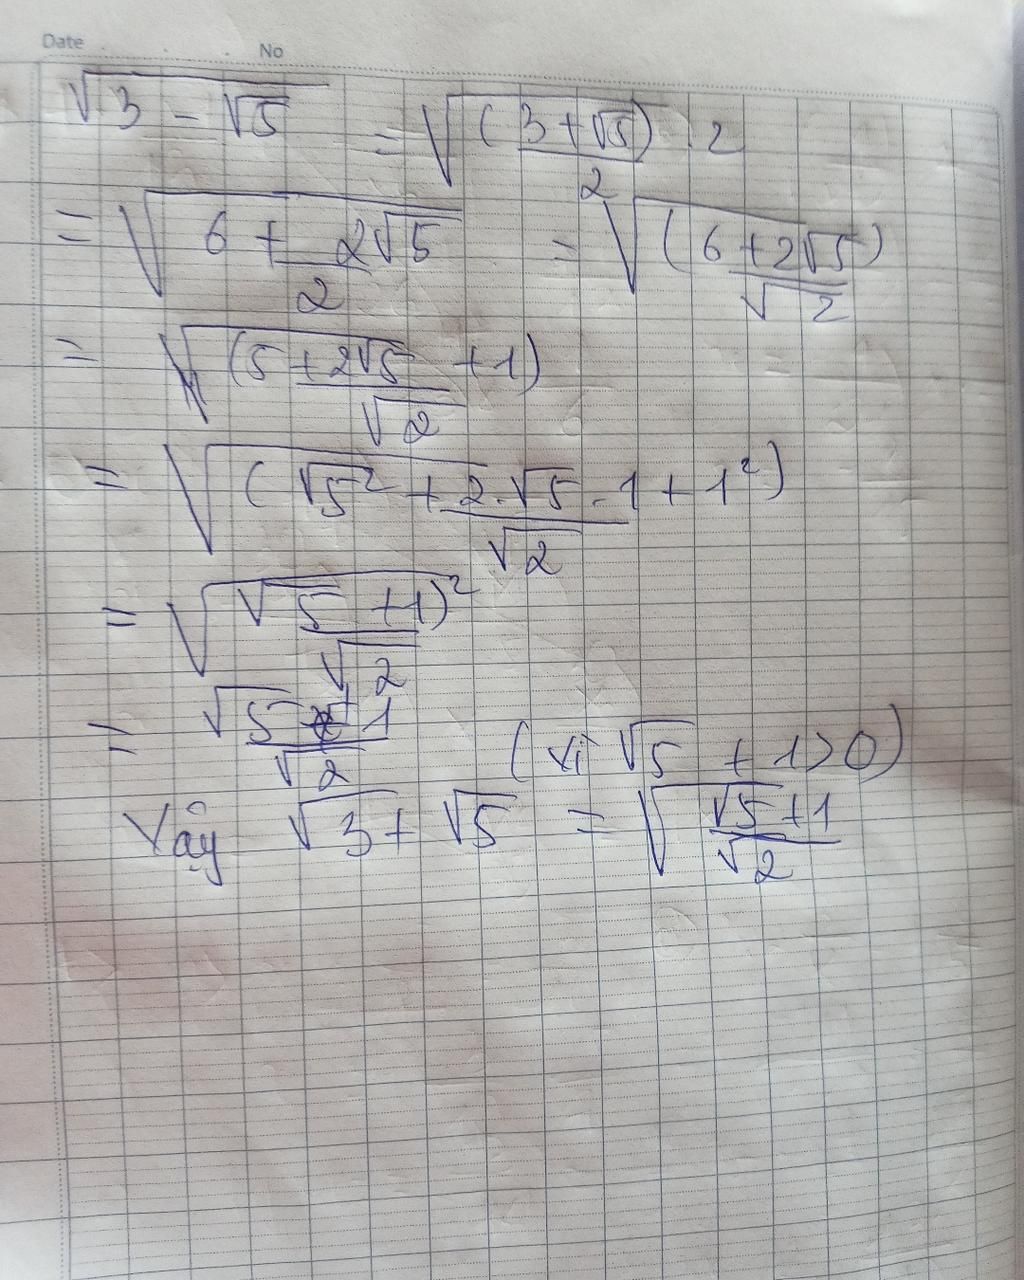 Date . . . No
√(3 - √5) = √((3 + √5) . 2 / 2)
= √((6 + 2√5) / 2) = √(6 + 2√5) / √2
= √(5 + 2√5 + 1) / √2
= √(√5² + 2.√5.1 + 1²) / √2
= √(√5 + 1)² / √2
= (√5 + 1) / √2 (vì √5 + 1 > 0)
Vậy √3 + √5 = √((√5 + 1) / √2)